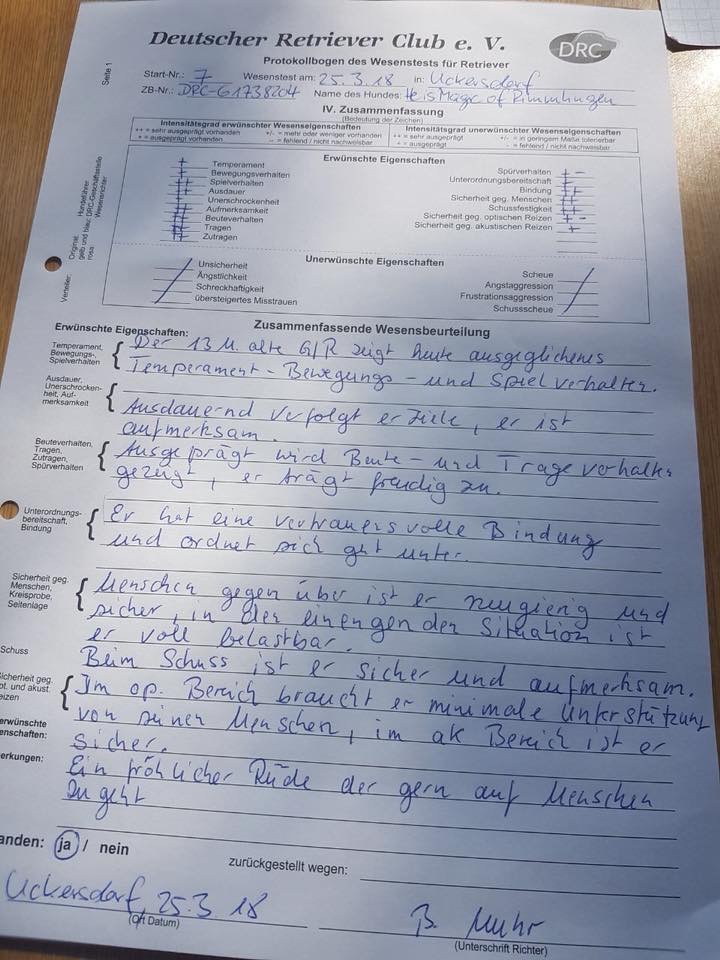 Deutscher Retriever Club e. V.
DRC
Protokollbogen des Wesenstests für Retriever
Seite 1
Start-Nr.: 7 Wesenstest am: 25.3.18 in: Uckersdorf
ZB-Nr.: DRC-G1738204 Name des Hundes: He is Magic of
IV. Zusammenfassung
(Bedeutung der Zeichen)
Intensitätsgrad erwünschter Wesenseigenschaften Intensitätsgrad unerwünschter Wesenseigenschaften
++ = sehr ausgeprägt vorhanden +/- = mehr oder weniger vorhanden ++ = sehr ausgeprägt +/- = in geringem Maße tolerierbar
+ = ausgeprägt vorhanden - = fehlend / nicht nachweisbar + = ausgeprägt - = fehlend / nicht nachweisbar
Erwünschte Eigenschaften
+ Temperament
+ Bewegungsverhalten
Spielverhalten
Ausdauer
Unerschrockenheit
Aufmerksamkeit
Beuteverhalten
Tragen
Zutragen
Spürverhalten
Unterordnungsbereitschaft
Bindung
Sicherheit geg. Menschen
Schussfestigkeit
Sicherheit geg. optischen Reizen
Sicherheit geg. akustischen Reizen +
Original: Hundeführer
gelb und blau: DRC-Geschäftsstelle
rosa: Wesensrichter
Verteiler:
Unerwünschte Eigenschaften
Unsicherheit
Ängstlichkeit
Schreckhaftigkeit
übersteigertes Misstrauen
Scheue
Angstaggression
Frustrationsaggression
Schussscheue
Zusammenfassende Wesensbeurteilung
Erwünschte Eigenschaften:
Temperament,
Bewegungs-,
Spielverhalten
Der 13 M. alte G/R zeigt heute ausgeglichenes
Temperament - Bewegungs - und Spielverhalten.
Ausdauer,
Unerschrocken-
heit, Auf-
merksamkeit
Ausdauernd verfolgt er Ziele, er ist
aufmerksam.
Beuteverhalten,
Tragen,
Zutragen,
Spürverhalten
Ausgeprägt wird Beute - und Trageverhalten
gezeigt, er trägt freudig zu.
Unterordnungs-
bereitschaft,
Bindung
Er hat eine vertrauensvolle Bindung
und ordnet sich gut unter.
Sicherheit geg.
Menschen,
Kreisprobe,
Seitenlage
Menschen gegenüber ist er neugierig und
sicher, in der einengenden Situation ist
er voll belastbar.
Schuss
Beim Schuss ist er sicher und aufmerksam.
Sicherheit geg.
opt. und akust.
Reizen
Im op. Bereich braucht er minimale Unterstützung
von seinen Menschen, im ak Bereich ist er
sicher.
erwünschte
enschaften:
erkungen:
Ein fröhlicher Rüde der gern auf Menschen
zu geht
anden: ja / nein
zurückgestellt wegen:
Uckersdorf, 25.3 18
(Ort Datum)
B. Muhr
(Unterschrift Richter)